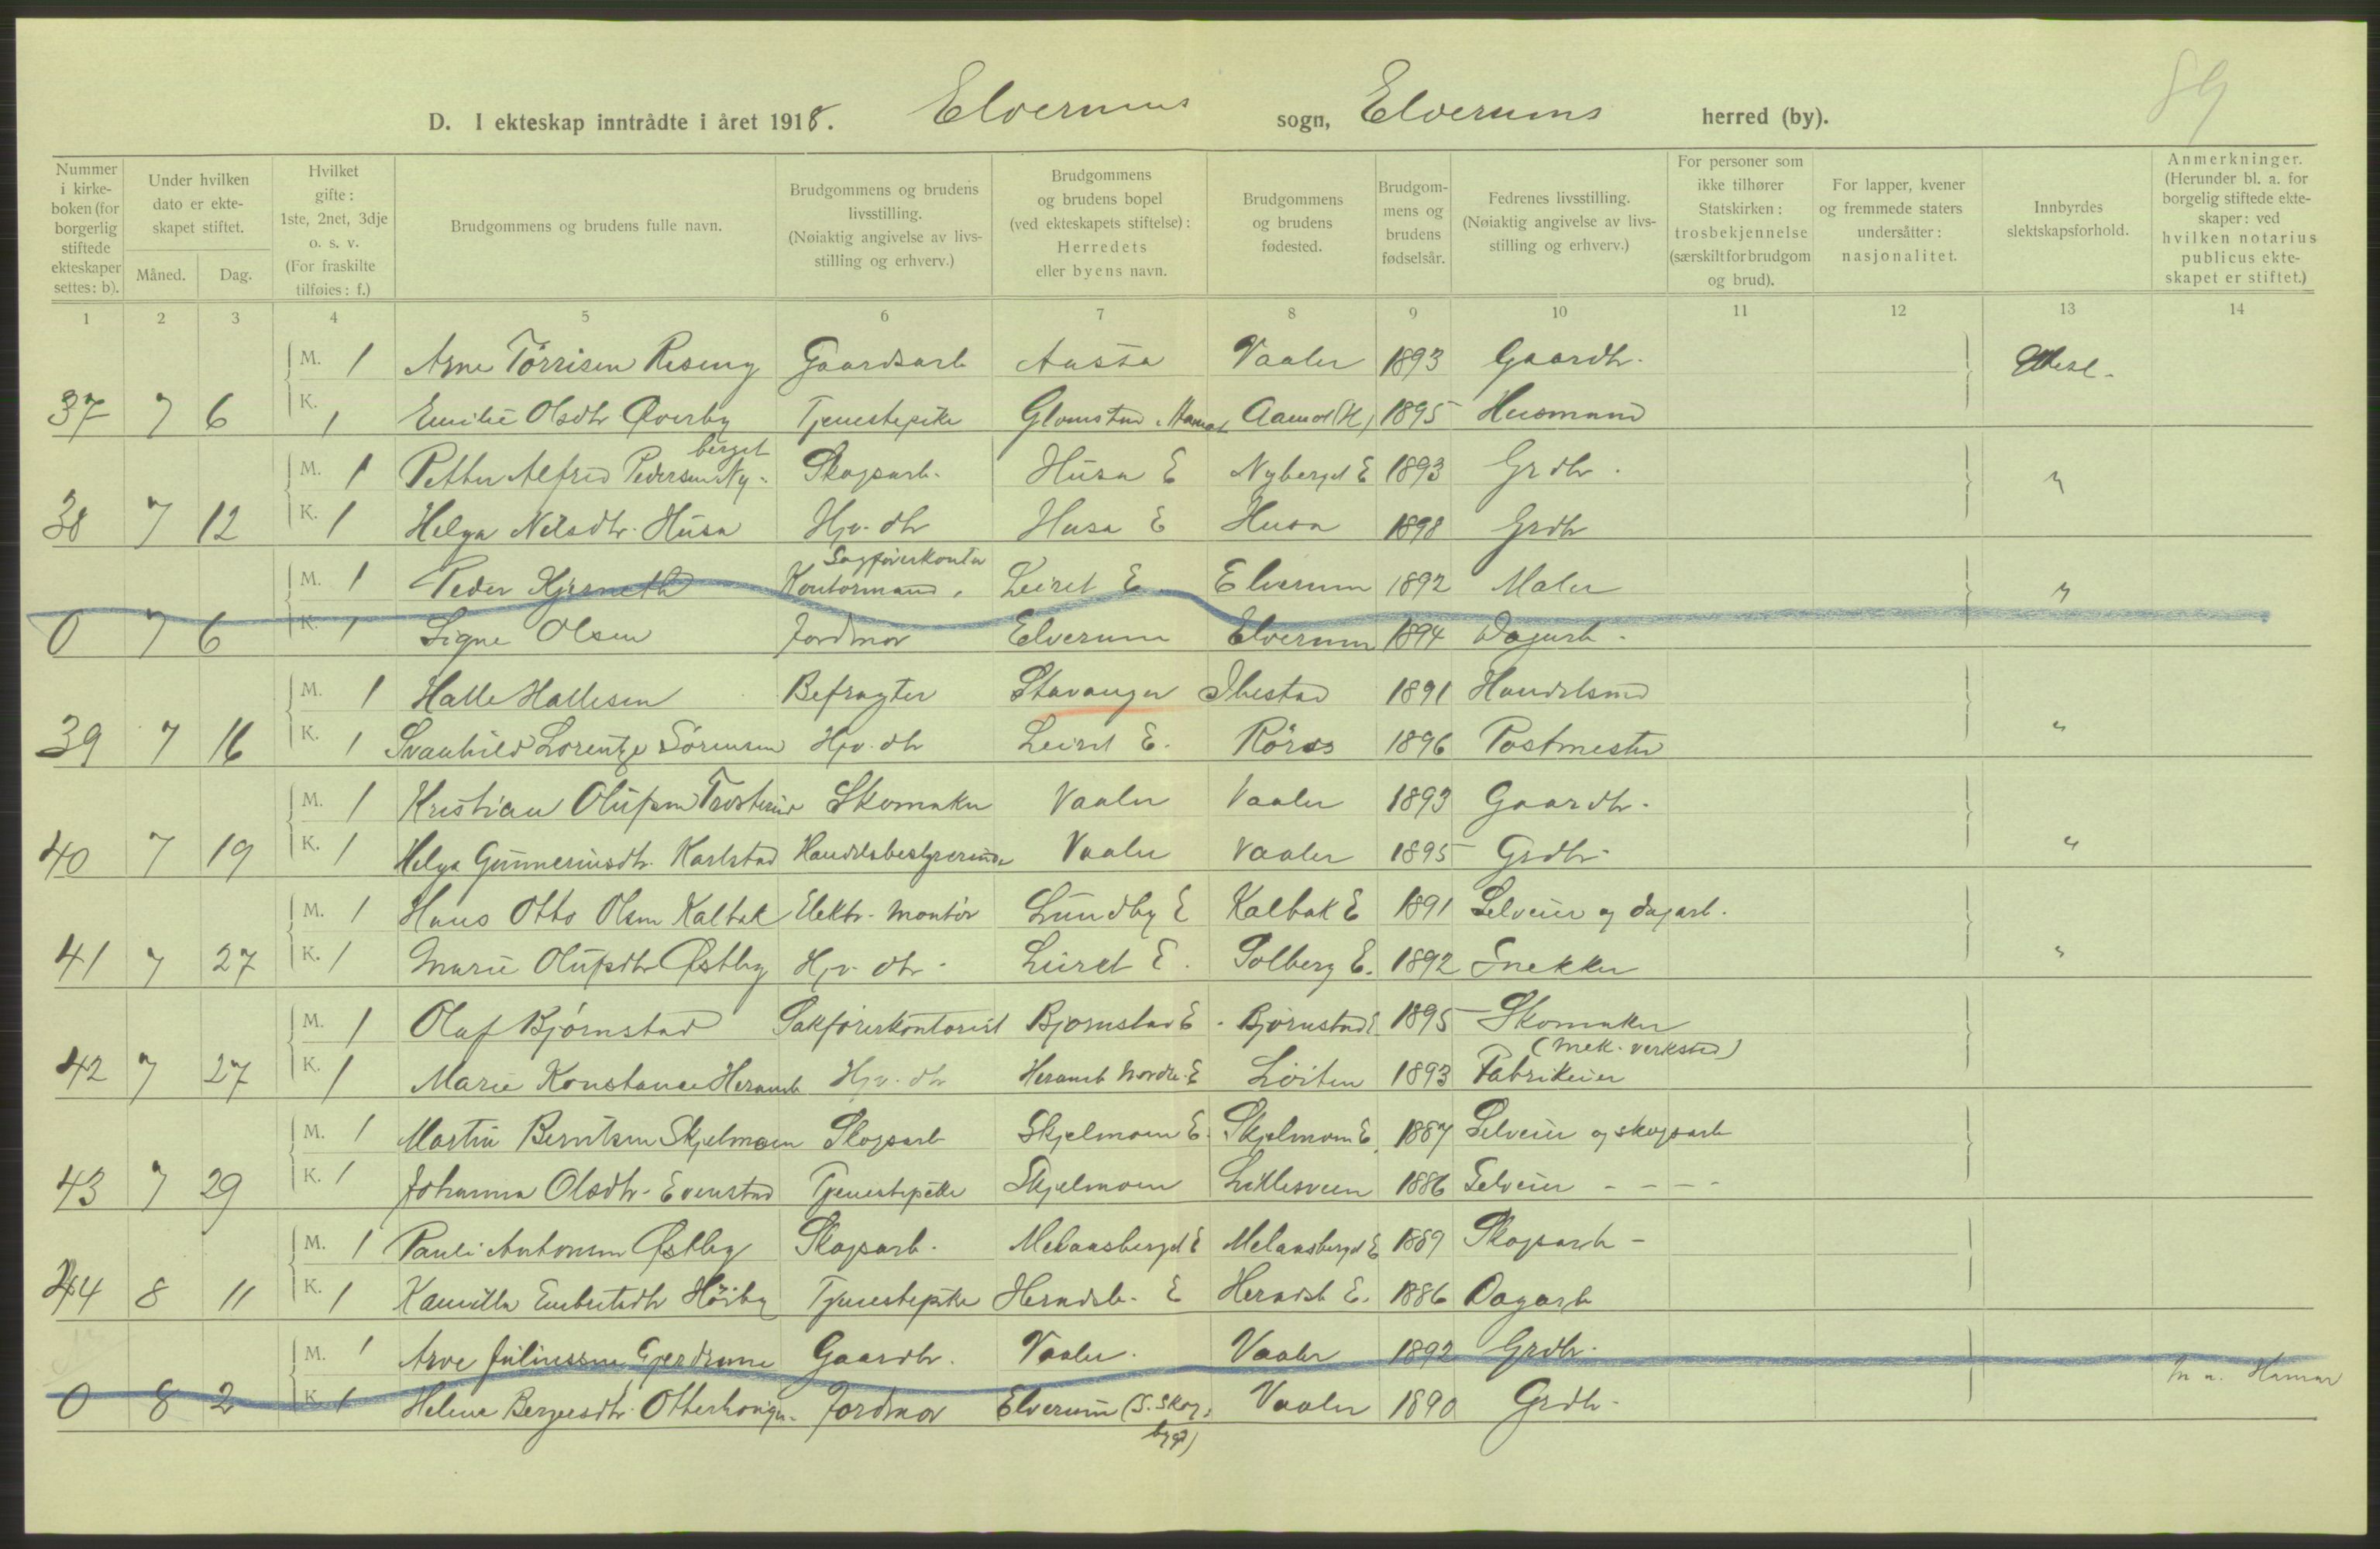 89
D. I ekteskap inntrådte i året 1918. Elverums sogn, Elverums herred (by).
Nummer i kirkeboken (for borgerlig stiftede ekteskaper settes: b).
Under hvilken dato er ekteskapet stiftet.
Måned. Dag.
Hvilket gifte: 1ste, 2net, 3dje o. s. v. (For fraskilte tilføies: f.)
Brudgommens og brudens fulle navn.
Brudgommens og brudens livsstilling. (Nøiaktig angivelse av livsstilling og erhverv.)
Brudgommens og brudens bopel (ved ekteskapets stiftelse): Herredets eller byens navn.
Brudgommens og brudens fødested.
Brudgommens og brudens fødselsår.
Fedrenes livsstilling. (Nøiaktig angivelse av livsstilling og erhverv.)
For personer som ikke tilhører Statskirken: trosbekjennelse (særskilt for brudgom og brud).
For lapper, kvener og fremmede staters undersåtter: nasjonalitet.
Innbyrdes slektskapsforhold.
Anmerkninger. (Herunder bl. a. for borgelig stiftede ekteskaper: ved hvilken notarius publicus ekteskapet er stiftet.)
1 2 3 4 5 6 7 8 9 10 11 12 13 14
M. 1 Arne Törrisen Reseng Gaardsarb Aasta Vaaler 1893 Gaardbr.
37 7 6 K. 1 Emilie Olsdtr Øverby Tjenestepike Glomstad, Aamot (H) 1895 Husmand
berget
M. 1 Petter Alfred Pedersen Ny- Skogsarb. Husa E Nyberget E 1893 Grdbr.
38 7 12 K. 1 Helga Nilsdtr. Husa Hjv. dtr Husa E Husa 1898 Grdbr
Sagförerkontor
M. 1 Peder Kontormand, Leiret E Elverum 1892 Maler "
0 7 6 K. 1 Signe Olsen Jordmor Elverum Elverum 1894 Dagarb.
M. 1 Halle Hallesen Befragter Stavanger Ibestad 1891 Handelsmd
39 7 16 K. 1 Svanhild Lorentze Sörensen Hjv. dtr Leiret E. Röros 1896 Postmester "
M. 1 Kristian Olufsen Skomaker Vaaler Vaaler 1893 Gaardbr.
40 7 19 K. 1 Helga Gunneriusdtr. Karlstad Handelsbestyrerinde Vaaler Vaaler 1895 Grdbr. "
M. 1 Hans Otto Olsen Kalbak Elektr. montör Lundby E Kalbak E 1891 Selveier og dagarb.
41 7 27 K. 1 Marie Olufsdtr Østby Hjv. dtr. Leiret E. Solberg E. 1892 Snekker "
M. 1 Olaf Bjørnstad Sakförerkontorist Bjørnstad E. Bjørnstad E 1895 Skomaker
(mek. verksted)
42 7 27 K. 1 Marie Konstance Hjv. dtr nordre E Löiten 1893 Fabrikeier
M. 1 Martin Berntsen Skjelmoen Skogsarb Skjelmoen E. Skjelmoen E. 1887 Selveier og skogsarb
43 7 29 K. 1 Johanna Olsdtr. Evenstad Tjenestepike Skjelmoen 1886 Selveier - - - -
M. 1 Pauli Antonsen Østby Skogsarb. Melaasberget E Melaasberget E 1889 Skogsarb -
44 8 11 K. 1 Kamilla Embretsdtr Höiby Tjenestepike E E. 1886 Dagarb
M. 1 Arve Juliussen Gjerdrum Gaardbr. Vaaler. Vaaler 1892 Grdbr. Hamar
0 8 2 K. 1 Helene Bergersdtr. Jordmor Elverum (S. Skog- Vaaler 1890 Grdbr.
bygd)